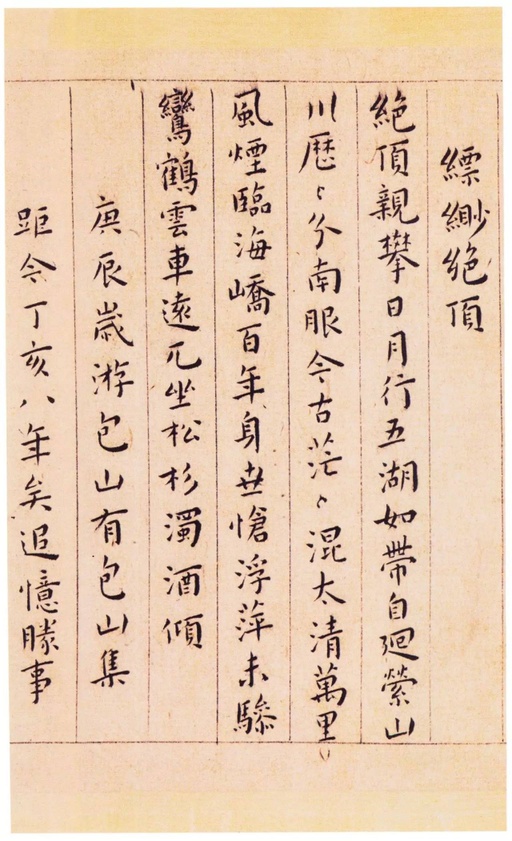 縹緲絕頂
絕頂親攀日月行五湖如帶自迴縈山
川歷〻分南眼今古茫〻混太清萬里
風煙臨海嶠百年身世愴浮萍未驂
鸞鶴雲車遠兀坐松杉濁酒傾
庚辰歲游包山有包山集
距今丁亥八年矣追憶勝事